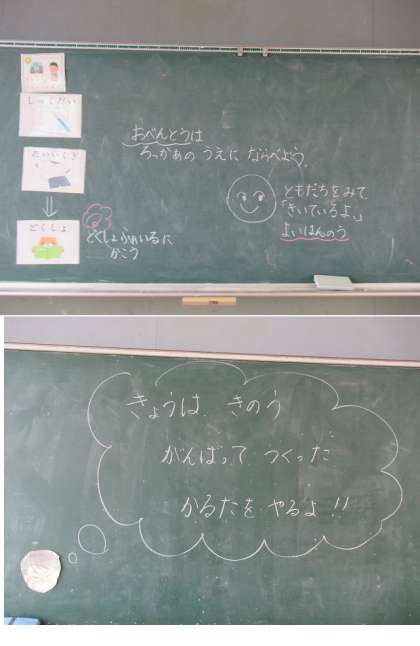 しゅくだい
たいいくぎ
どくしょ
おべんとうは
ろっかあの うえに ならべよう。
ともだちをみて
「きいているよ。」
よいはんのう
どくしょふぁいるに
かこう
きょうは きのう
がんばって つくった
かるたを やるよ!!